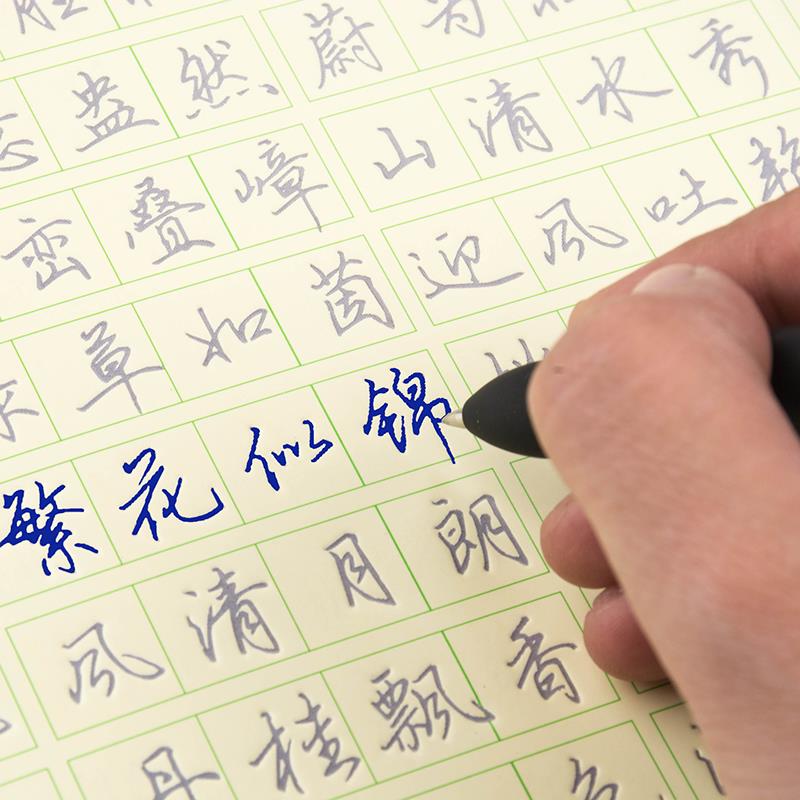 盎然 蔚为
峦叠嶂 山清水秀
草如茵 迎风吐
繁花似锦
风清月朗
丹桂飘香